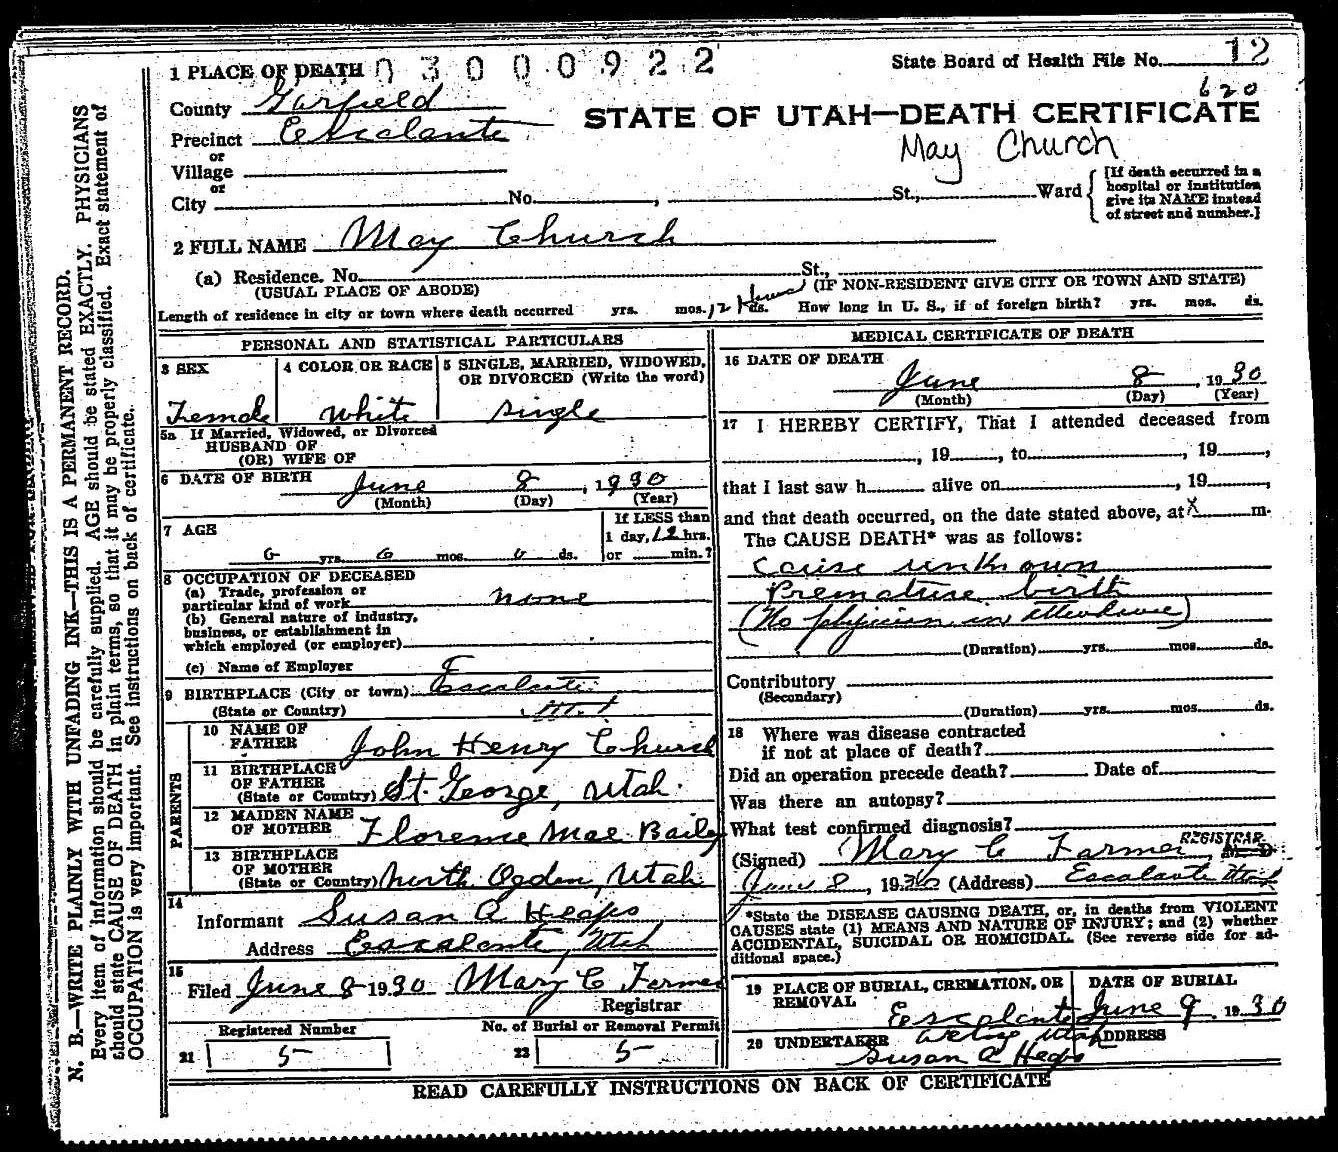 1 PLACE OF DEATH 0300922
State Board of Health File No. 12
620
County Garfield
STATE OF UTAH—DEATH CERTIFICATE
Precinct Escalante
May Church
or
Village
or
City No. , St., Ward
[If death occurred in a
hospital or institution
give its NAME instead
of street and number.]
2 FULL NAME May Church
(a) Residence. No. St.,
(USUAL PLACE OF ABODE) (IF NON-RESIDENT GIVE CITY OR TOWN AND STATE)
Length of residence in city or town where death occurred yrs. mos. 12 Hours ds. How long in U. S., if of foreign birth? yrs. mos. ds.
PERSONAL AND STATISTICAL PARTICULARS
3 SEX
Female
4 COLOR OR RACE
White
5 SINGLE, MARRIED, WIDOWED,
OR DIVORCED (Write the word)
single
5a If Married, Widowed, or Divorced
HUSBAND OF
(OR) WIFE OF
6 DATE OF BIRTH June 8, 1930
(Month) (Day) (Year)
7 AGE
0 yrs. 0 mos. 0 ds.
If LESS than
1 day, 12 hrs.
or min.?
8 OCCUPATION OF DECEASED
(a) Trade, profession or
particular kind of work none
(b) General nature of industry,
business, or establishment in
which employed (or employer)
(c) Name of Employer
9 BIRTHPLACE (City or town) Escalante
(State or Country) Utah
PARENTS
10 NAME OF
FATHER John Henry Church
11 BIRTHPLACE
OF FATHER
(State or Country) St. George, Utah.
12 MAIDEN NAME
OF MOTHER Florence Mae Bailey
13 BIRTHPLACE
OF MOTHER
(State or Country) North Ogden, Utah
14
Informant Susan A Heaps
Address Escalante, Utah
15
Filed June 8 1930 Mary C Farmer
Registrar
Registered Number
21 5
No. of Burial or Removal Permit
22 5
MEDICAL CERTIFICATE OF DEATH
16 DATE OF DEATH
June 8, 1930
(Month) (Day) (Year)
17 I HEREBY CERTIFY, That I attended deceased from
, 19, to , 19,
that I last saw h alive on , 19,
and that death occurred, on the date stated above, at X m.
The CAUSE DEATH* was as follows:
cause unknown
Premature birth
(No physician in attendance)
(Duration) yrs. mos. ds.
Contributory
(Secondary)
(Duration) yrs. mos. ds.
18 Where was disease contracted
if not at place of death?
Did an operation precede death? Date of
Was there an autopsy?
What test confirmed diagnosis?
(Signed) Mary C Farmer REGISTRAR M. D.
June 8, 1930 (Address) Escalante Utah
*State the DISEASE CAUSING DEATH, or, in deaths from VIOLENT
CAUSES state (1) MEANS AND NATURE OF INJURY; and (2) whether
ACCIDENTAL, SUICIDAL OR HOMICIDAL. (See reverse side for ad-
ditional space.)
19 PLACE OF BURIAL, CREMATION, OR
REMOVAL
Escalante
Utah
DATE OF BURIAL
June 9 1930
20 UNDERTAKER ADDRESS
Susan A Heaps
READ CAREFULLY INSTRUCTIONS ON BACK OF CERTIFICATE
N. B.—WRITE PLAINLY WITH UNFADING INK—THIS IS A PERMANENT RECORD.
Every item of information should be carefully supplied. AGE should be stated EXACTLY. PHYSICIANS
should state CAUSE OF DEATH in plain terms, so that it may be properly classified. Exact statement of
OCCUPATION is very important. See instructions on back of certificate.